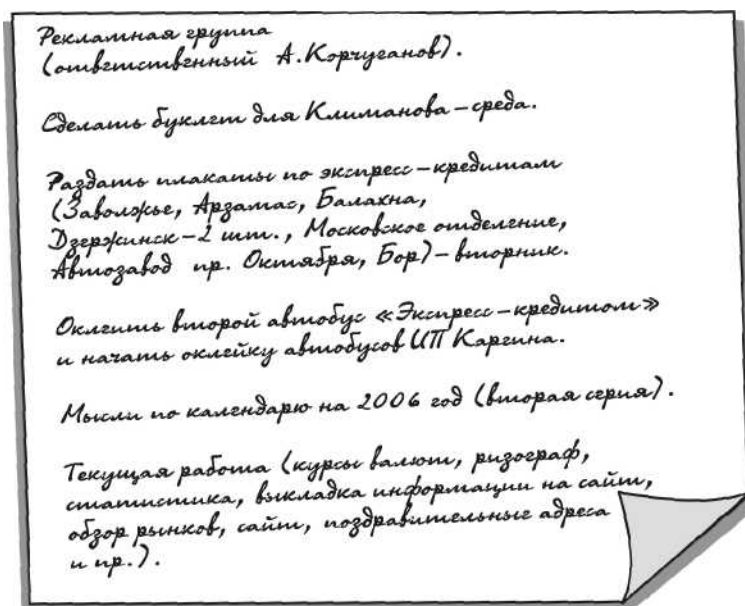 Рекламная группа
(ответственный А.Корчуганов).
Сделать буклет для Климанова – среда.
Раздать плакаты по экспресс – кредитам
(Заволжье, Арзамас, Балахна,
Дзержинск – 2 шт., Московское отделение,
Автозавод пр. Октября, Бор) – вторник.
Оклеить второй автобус «Экспресс – кредитом»
и начать оклейку автобусов ИП Каргина.
Мысли по календарю на 2006 год (вторая серия).
Текущая работа (курсы валют, ризограф,
статистика, выкладка информации на сайт,
обзор рынков, сайт, поздравительные адреса
и пр.).